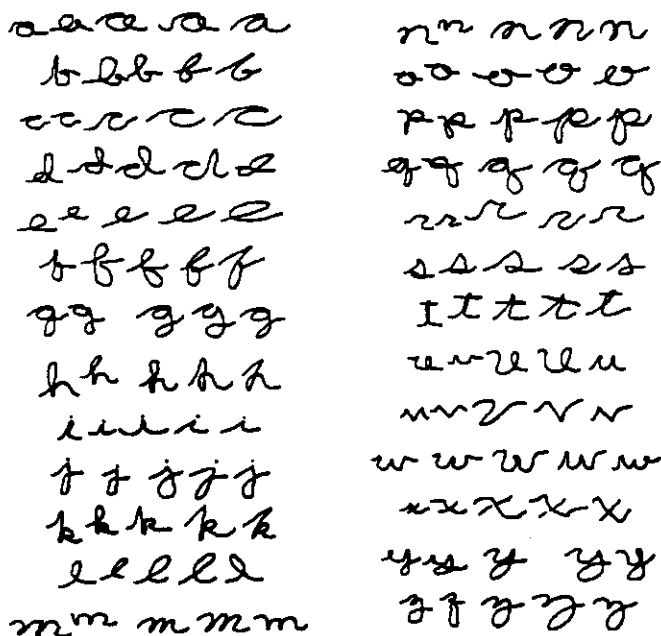 a a a a a
b b b b b
c c c c c
d d d d d
e e e e e
f f f f f
g g g g g
h h h h h
i i i i i
j j j j j
k k k k k
l l l l l
m m m m m
n n n n n
o o o o o
p p p p p
q q q q q
r r r r r
s s s s s
t t t t t
u u u u u
v v v v v
w w w w w
x x x x x
y y y y y
z z z z z